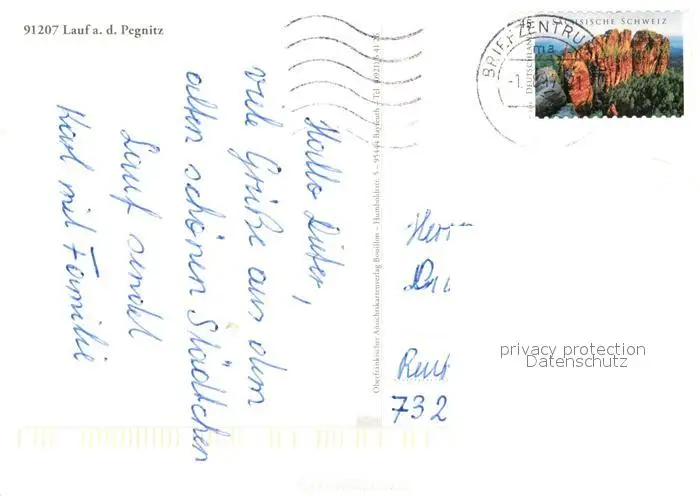 91207 Lauf a. d. Pegnitz
Hallo Dieter,
viele Grüße aus dem
alten schönen Städtchen
Lauf sendet
Karl mit Familie
Oberfränkischer Ansichtskartenverlag Bouillon – Humboldtstr. 5 – 95444 Bayreuth – Tel.
BRIEFZENTRU
45
SÄCHSISCHE SCHWEIZ
DEUTSCHLAND
Herr
732
privacy protection
Datenschutz